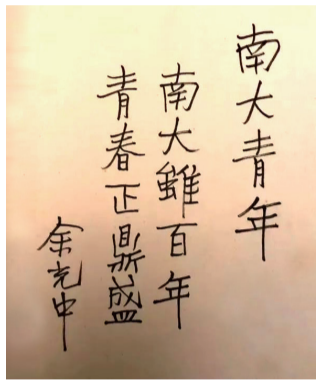 南大青年
南大雖百年
青春正鼎盛
余光中